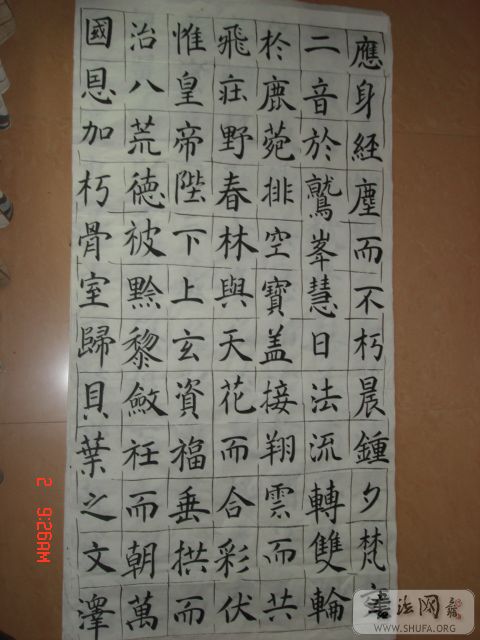 應身經塵而不朽晨鍾夕梵
二音於鷲峯慧日法流轉雙輪
扵鹿菀排空寶盖接翔雲而共
飛莊野春林與天花而合彩伏
惟皇帝陛下上玄資福垂拱而
治八荒德被黔黎斂衽而朝萬
國恩加朽骨室歸貝葉之文澤
2 9:26AM
书法网
WWW.SHUFA.ORG